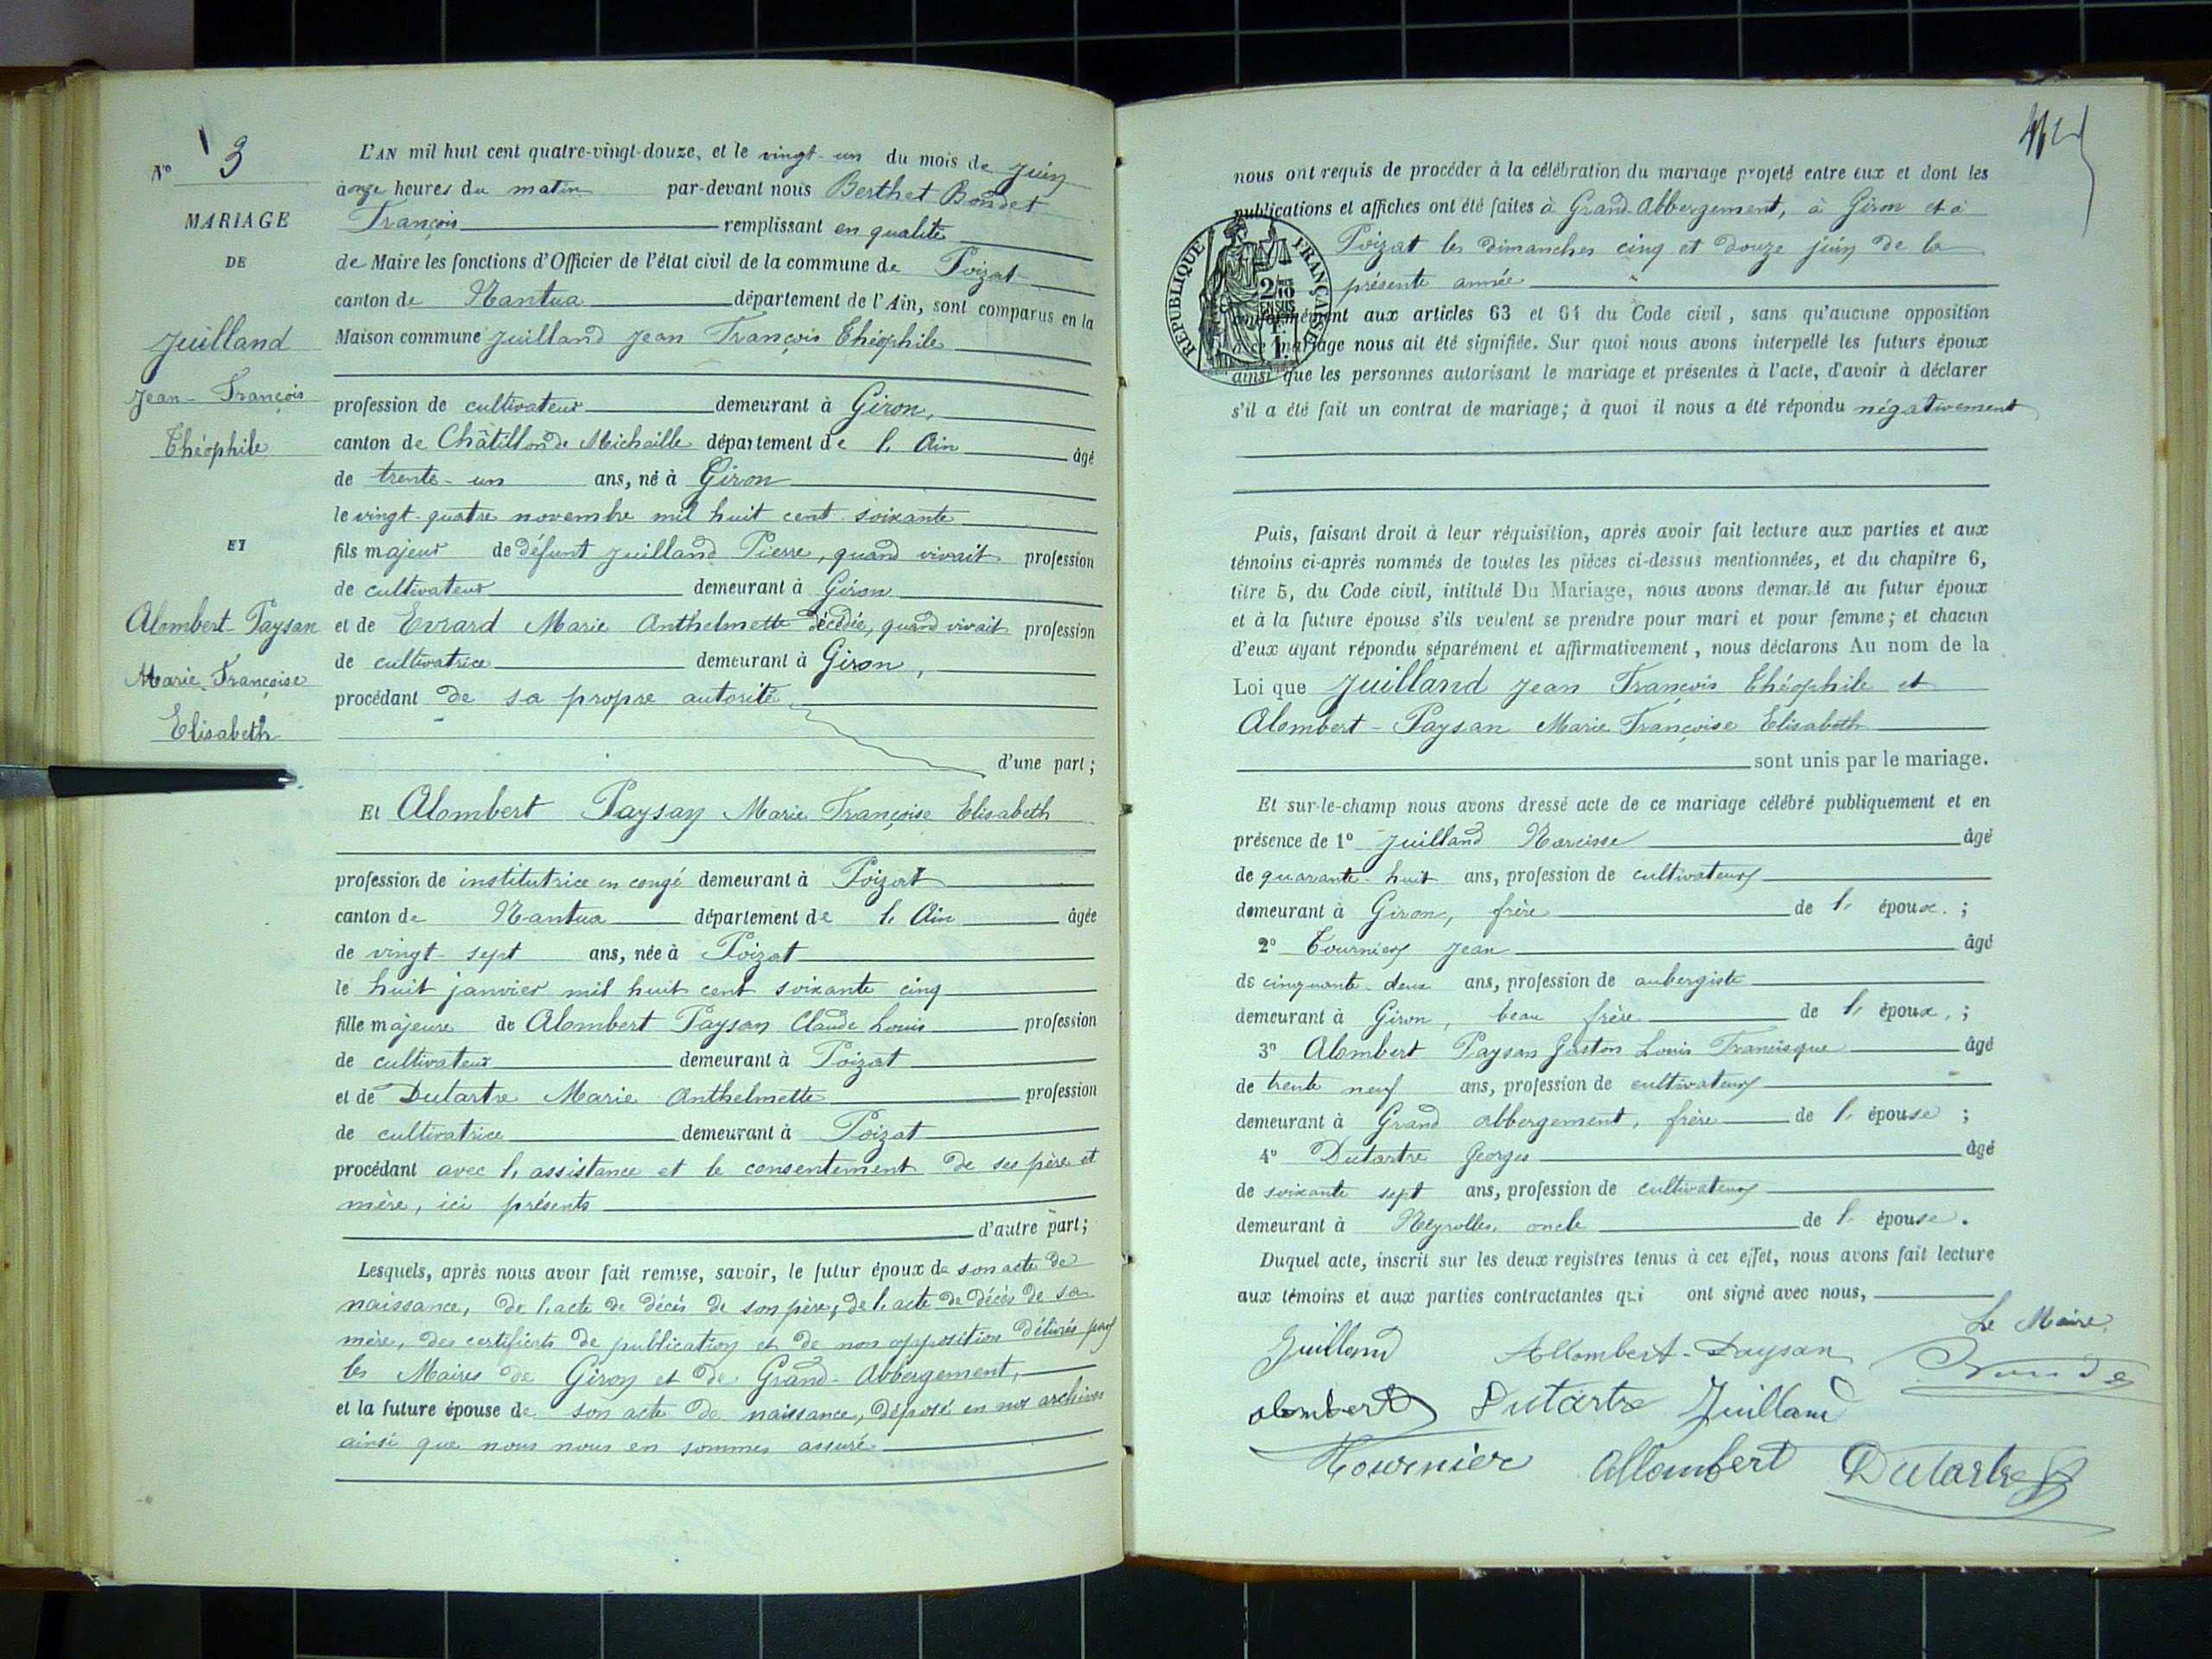 N° 3
MARIAGE
DE
Juilland
Jean-François
Théophile
ET
Alombert-Paysan
Marie Françoise
Elisabeth
L'AN mil huit cent quatre-vingt-douze, et le vingt-un du mois de juin
à onze heures du matin par-devant nous Berthet Bondet
François remplissant en qualité
de Maire les fonctions d'Officier de l'état civil de la commune de Poizat
canton de Nantua département de l'Ain, sont comparus en la
Maison commune Juilland Jean François Théophile
profession de cultivateur demeurant à Giron,
canton de Châtillon de Michaille département de l'Ain âgé
de trente-un ans, né à Giron
le vingt-quatre novembre mil huit cent soixante
fils majeur de défunt Juilland Pierre, quand vivait profession
de cultivateur demeurant à Giron
et de Evrard Marie Anthelmette décédée, quand vivait profession
de cultivatrice demeurant à Giron,
procédant de sa propre autorité
d'une part;
Et Alombert Paysan Marie Françoise Elisabeth
profession de institutrice en congé demeurant à Poizat
canton de Nantua département de l'Ain âgée
de vingt-sept ans, née à Poizat
le huit janvier mil huit cent soixante cinq
fille majeure de Alombert Paysan Claude Louis profession
de cultivateur demeurant à Poizat
et de Dutartre Marie Anthelmette profession
de cultivatrice demeurant à Poizat
procédant avec l'assistance et le consentement de ses père et
mère, ici présents
d'autre part;
Lesquels, après nous avoir fait remise, savoir, le futur époux de son acte de
naissance, de l'acte de décès de son père, de l'acte de décès de sa
mère, des certificats de publication et de non opposition délivrés par
les Maires de Giron et de Grand-Abbergement,
et la future épouse de son acte de naissance, déposé en nos archives
ainsi que nous nous en sommes assuré
nous ont requis de procéder à la célébration du mariage projeté entre eux et dont les
publications et affiches ont été faites à Grand-Abbergement, à Giron et à
Poizat les dimanches cinq et douze juin de la
présente année
RÉPUBLIQUE FRANÇAISE
2/10 EN SUS
1F.
conformément aux articles 63 et 64 du Code civil, sans qu'aucune opposition
mariage nous ait été signifiée. Sur quoi nous avons interpellé les futurs époux
ainsi que les personnes autorisant le mariage et présentes à l'acte, d'avoir à déclarer
s'il a été fait un contrat de mariage; à quoi il nous a été répondu négativement
Puis, faisant droit à leur réquisition, après avoir fait lecture aux parties et aux
témoins ci-après nommés de toutes les pièces ci-dessus mentionnées, et du chapitre 6,
titre 5, du Code civil, intitulé Du Mariage, nous avons demandé au futur époux
et à la future épouse s'ils veulent se prendre pour mari et pour femme; et chacun
d'eux ayant répondu séparément et affirmativement, nous déclarons Au nom de la
Loi que Juilland Jean François Théophile et
Alombert-Paysan Marie Françoise Elisabeth
sont unis par le mariage.
Et sur-le-champ nous avons dressé acte de ce mariage célébré publiquement et en
présence de 1° Juilland Narcisse âgé
de quarante-huit ans, profession de cultivateur
demeurant à Giron, frère de l'époux;
2° Tournier Jean âgé
de cinquante-deux ans, profession de aubergiste
demeurant à Giron, beau frère de l'époux;
3° Alombert Paysan Gaston Louis Francisque âgé
de trente neuf ans, profession de cultivateur
demeurant à Grand Abbergement, frère de l'épouse;
4° Dutartre Georges âgé
de soixante sept ans, profession de cultivateur
demeurant à Neyrolles, oncle de l'épouse.
Duquel acte, inscrit sur les deux registres tenus à cet effet, nous avons fait lecture
aux témoins et aux parties contractantes qui ont signé avec nous,
Le Maire
Juilland Allombert-Paysan
alombert Dutartre Juilland
Tournier Allombert Dutartre